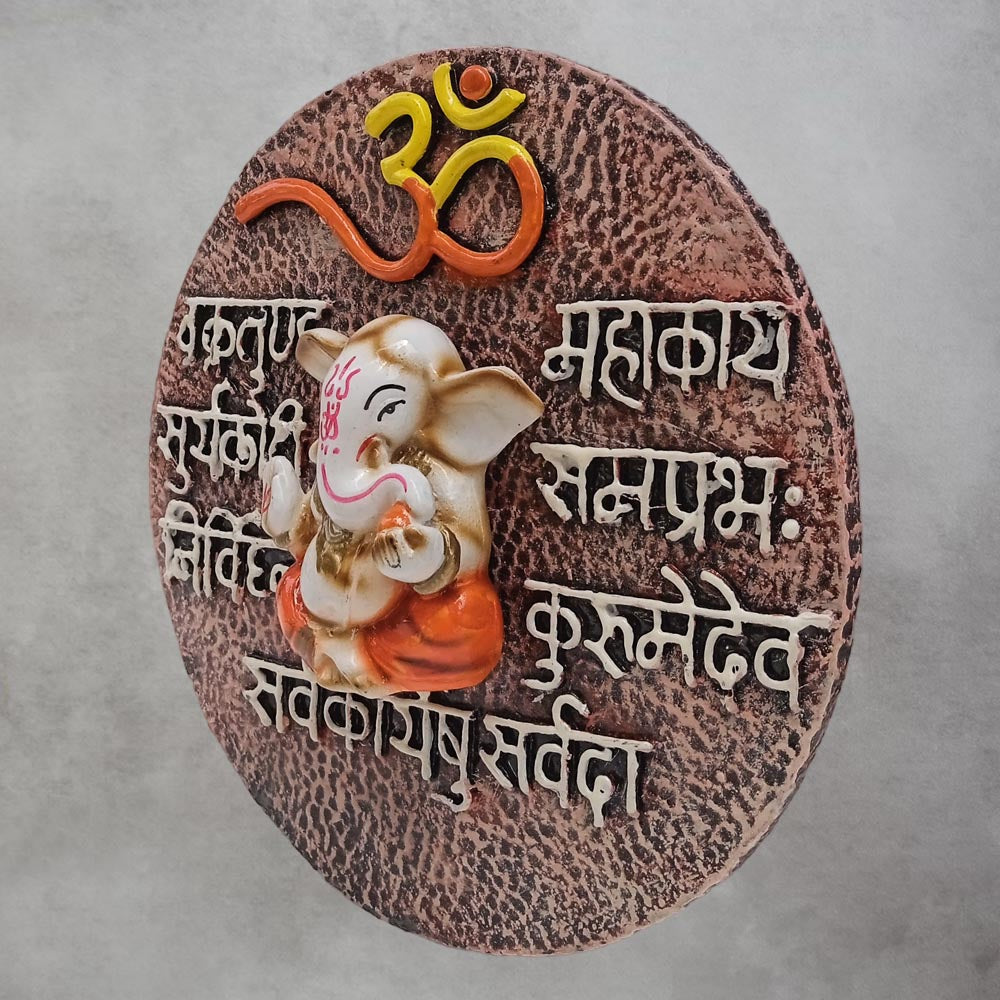 ॐ
वक्रतुण्ड महाकाय
सुर्यकोटी समप्रभः
निर्विघ्न कुरुमेदेव
सर्वकार्येषु सर्वदा